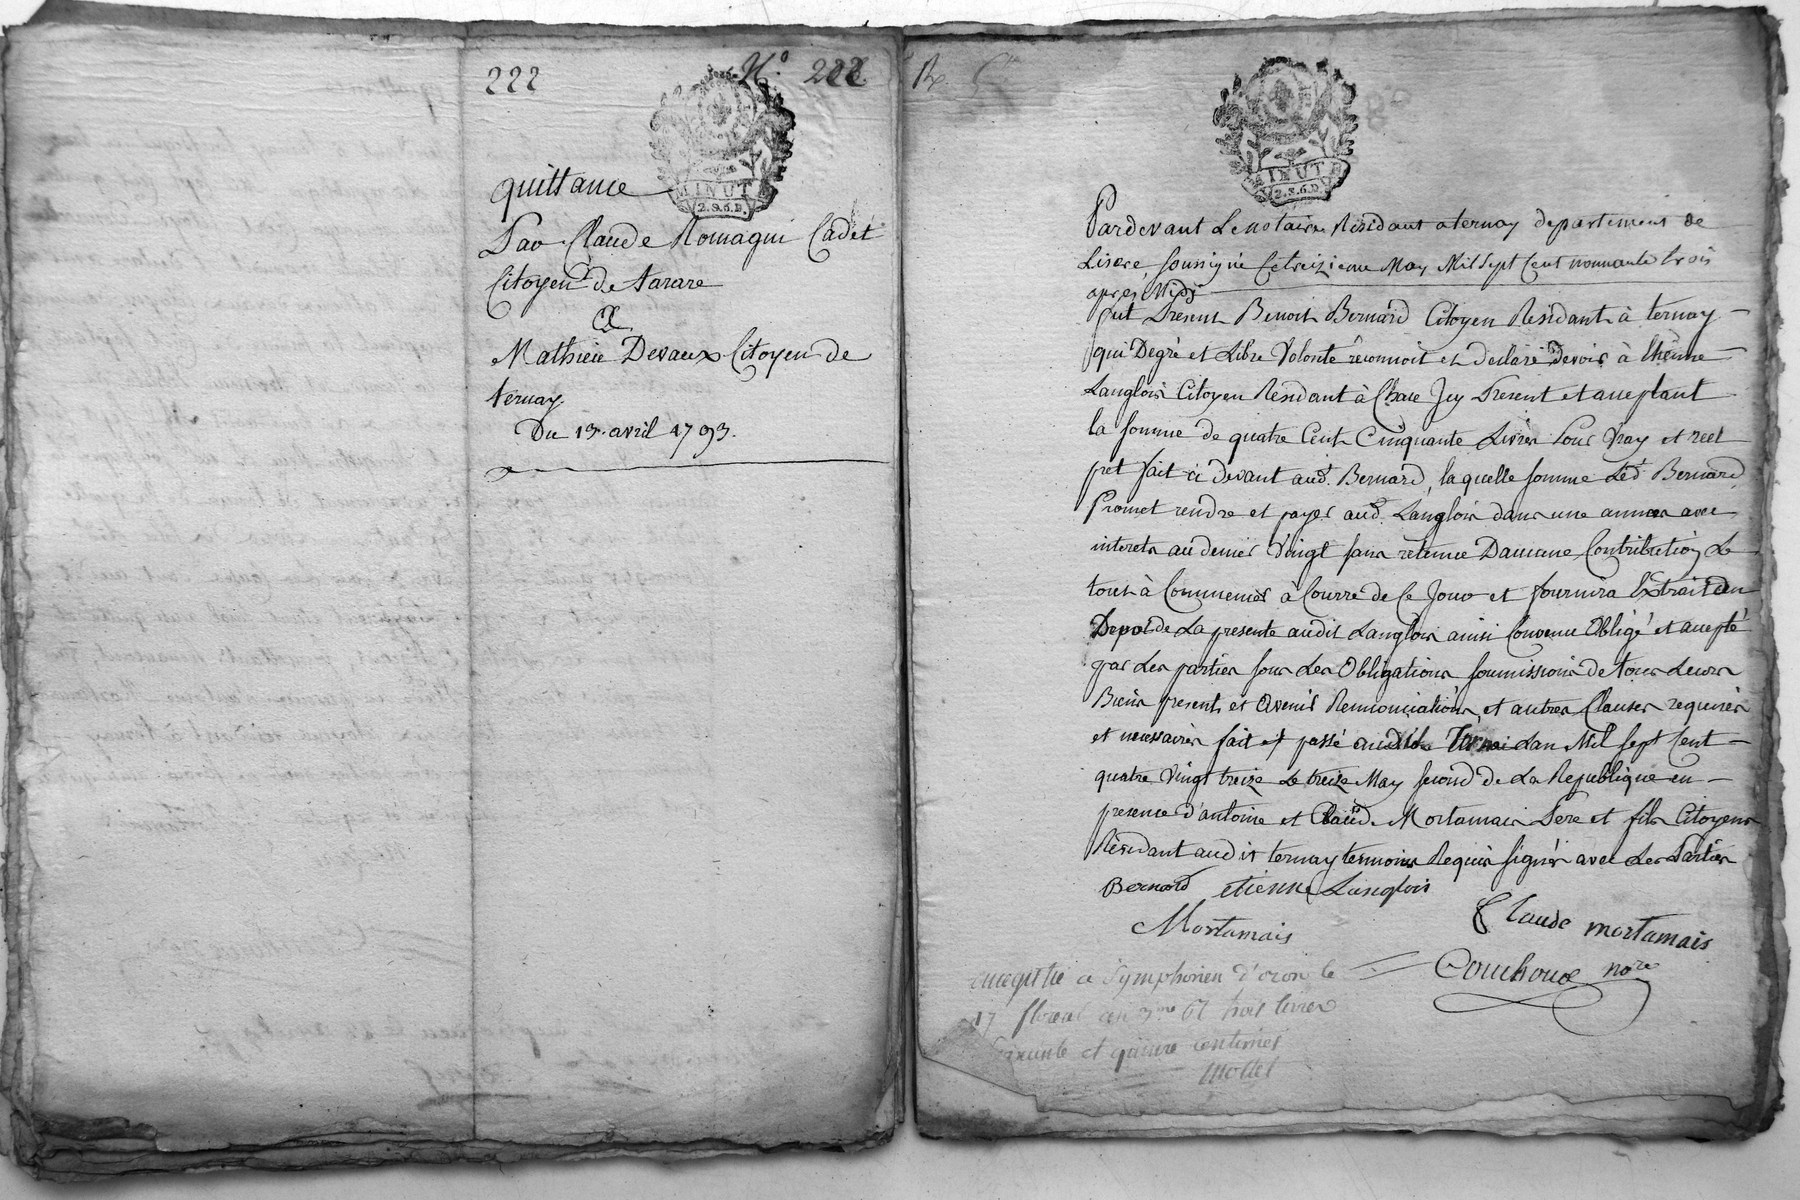 222
N.º 222.
MINUTE
2.S.6.D.
quittance
Par Claude Romagni Cadet
Citoyen de tarare
A
Mathieu Devaux Citoyen de
ternay
Du 13. avril 1793.
MINUTE
2.S.6.D.
Pardevant Le notaire Résidant a ternay departement de
Lisere, soussigné Cetreizieme May Mil Sept Cent nonnante trois
apres Midi
fut Present Benoit Bernard Citoyen Residant à ternay
qui Degré et Libre Volonté reconnoit et declare devoir à Etienne
Langlois Citoyen Residant à Jcy Present et acceptant
la somme de quatre Cent Cinquante Livres Pour Vray et reel
pret fait ci devant aud. Bernard, la quelle somme Led. Bernard
Promet rendre et payer aud. Langlois dans une année avec
interets au denier Vingt sans retenue Daucune Contribution Le
tout à Commencer à Courre de Ce Jour et fournira Extrait en
Depot de La presente audit Langlois ainsi Convenu Obligé et accepté
par Les parties sous Les Obligations soumissions de tous Leurs
Biens presents et Avenir Renonciations, et autres Clauses requises
et necessaires fait et passé audit Ternai Lan Mil sept Cent
quatre Vingt treize Le treize May second de La Republique en
presence d'antoine et Claud. Mortamais Pere et fils Citoyens
Résidant audit ternay temoins Requis signés avec Les Parties
Bernard etienne Langlois
Mortamais
Claude mortamais
Couchoud nore
enregistré a Symphorien d'ozon le
17 floreal an 3me trois livres
et quinze centimes
Mollet